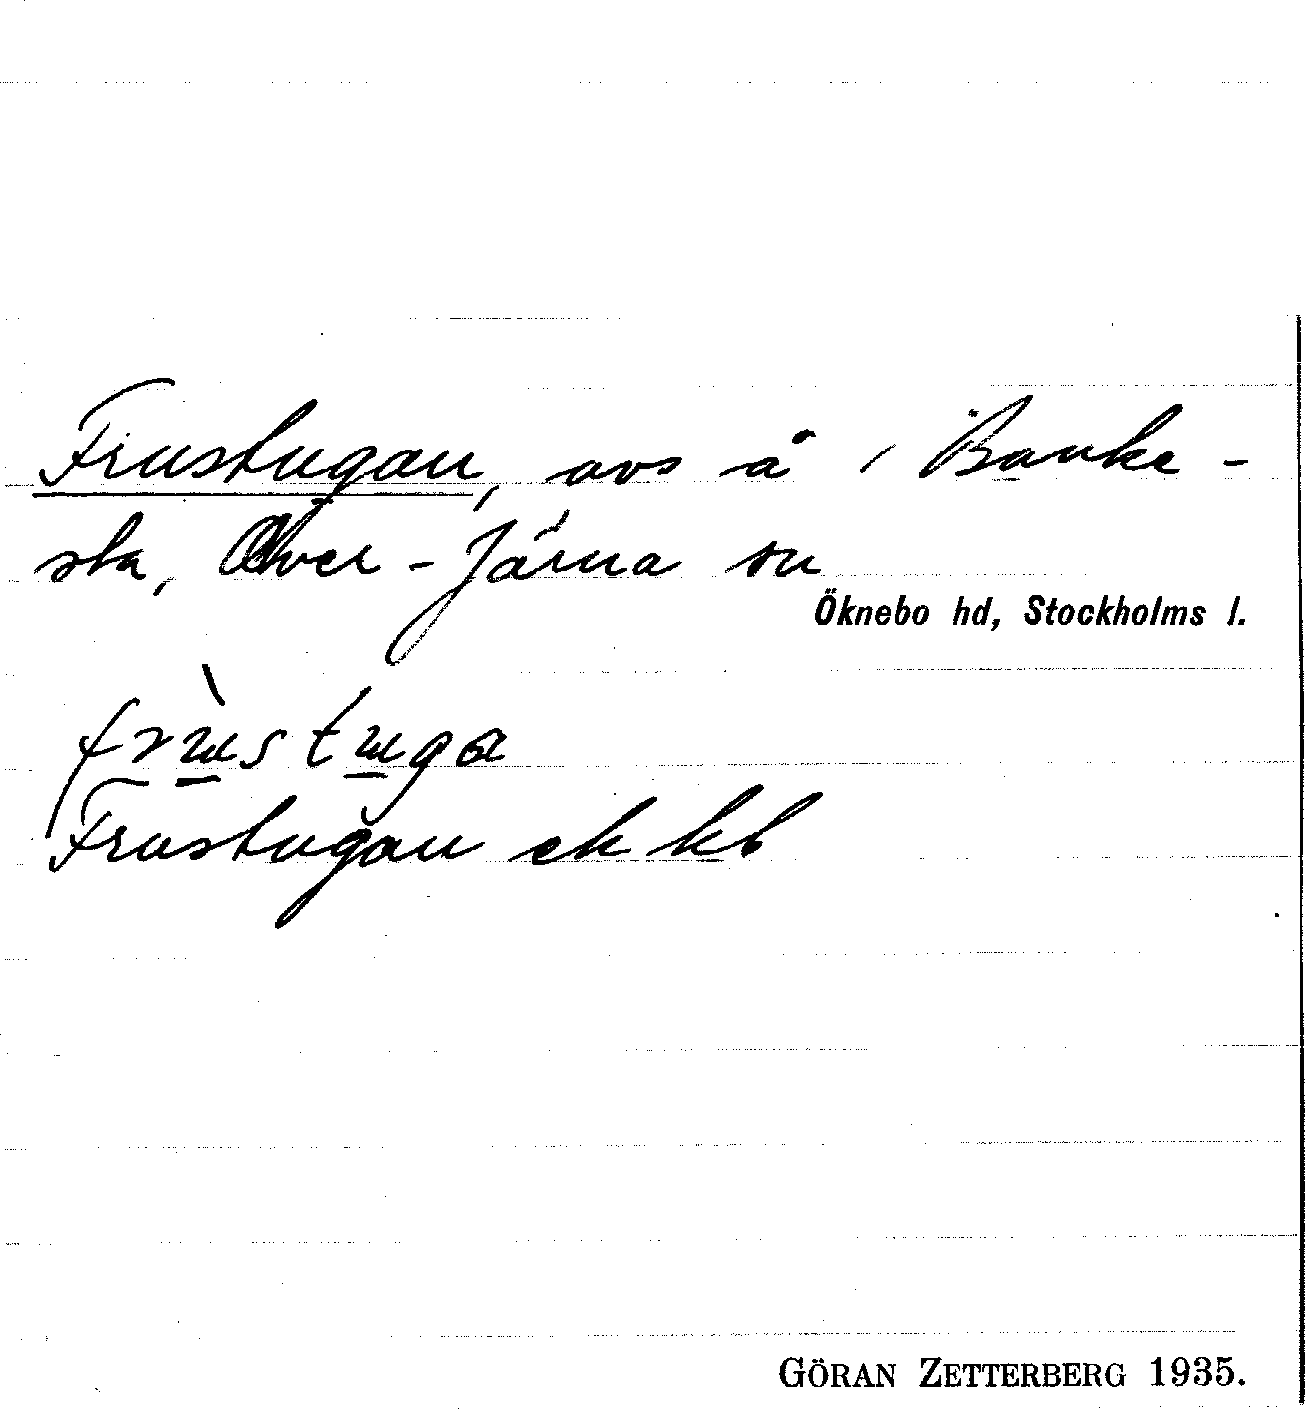 Frustugan, avs å i Banke-
sta, Över-Järna sn
Öknebo hd, Stockholms l.
frùstuga
Frustugan ek kb
GÖRAN ZETTERBERG 1935.